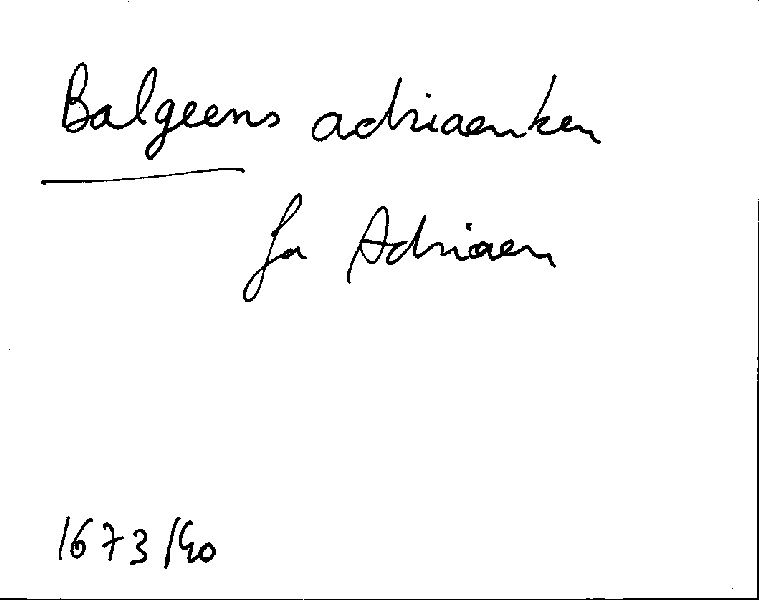 Balgeens adriaenken
fa Adriaen
1673/40